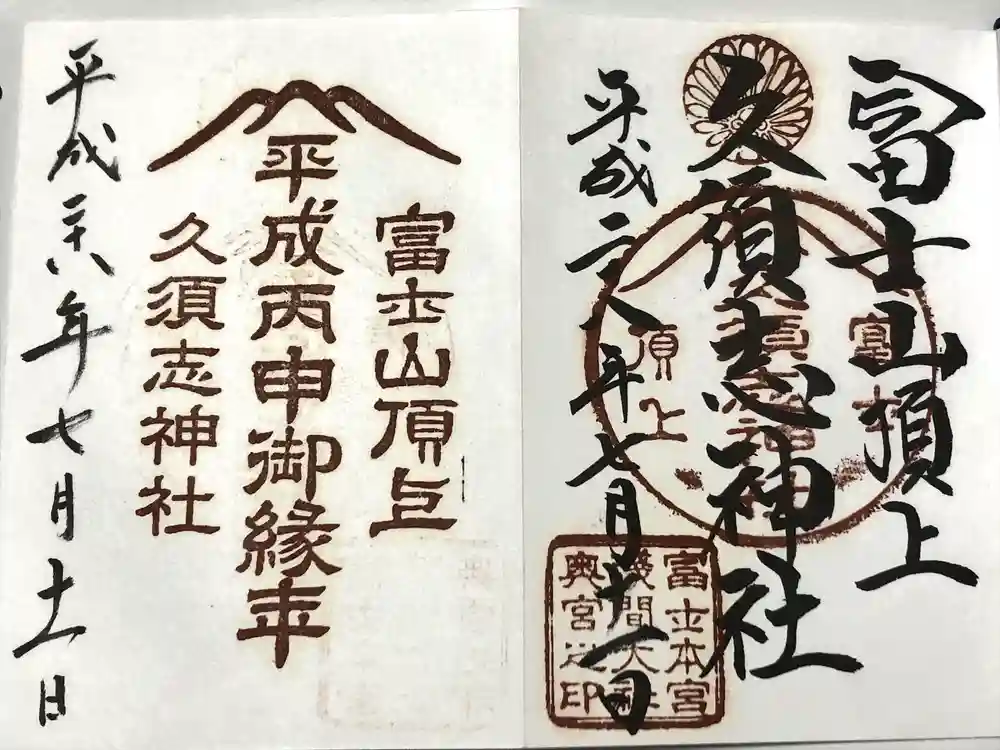 富士山頂上
久須志神社
平成二八年七月十一日
富士山
頂上
富士本宮
浅間大社
奥宮之印
富士山頂上
平成丙申御縁年
久須志神社
平成二十八年七月十一日